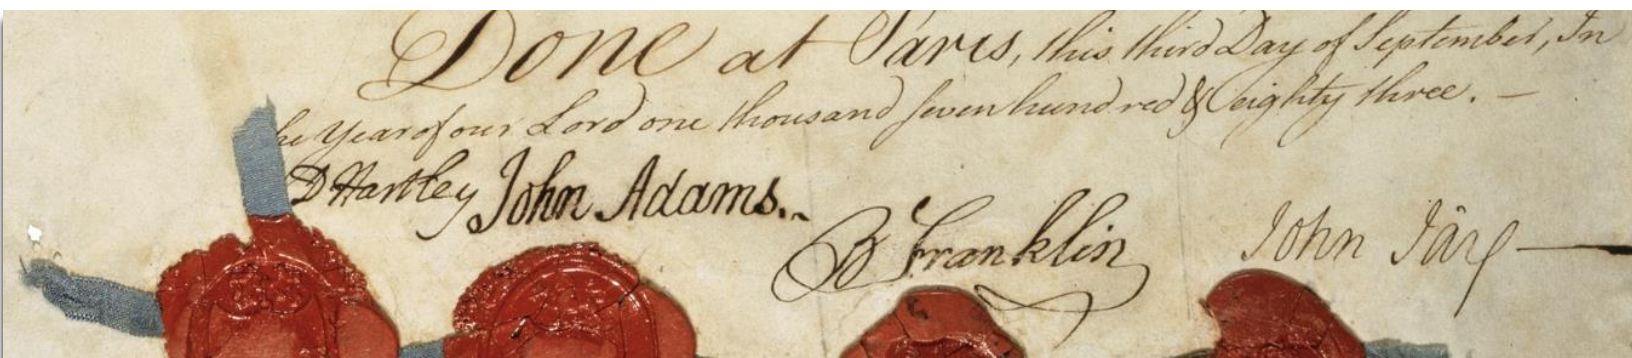 Done at Paris, this third Day of September, In
he Year of our Lord one thousand seven hundred & eighty three. —
D Hartley John Adams.
B Franklin John Jay